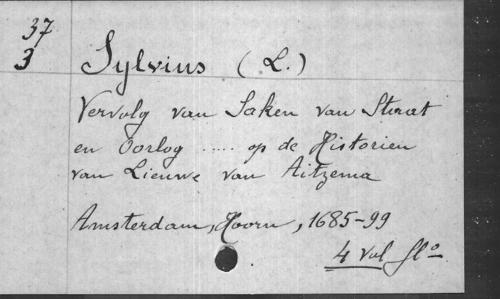 37
3
Sylvius (L.)
Vervolg van Saken van Staat
en Oorlog ..... op de Historien
van Lieuwe van Aitzema
Amsterdam, Hoorn, 1685-99
4 vol flo